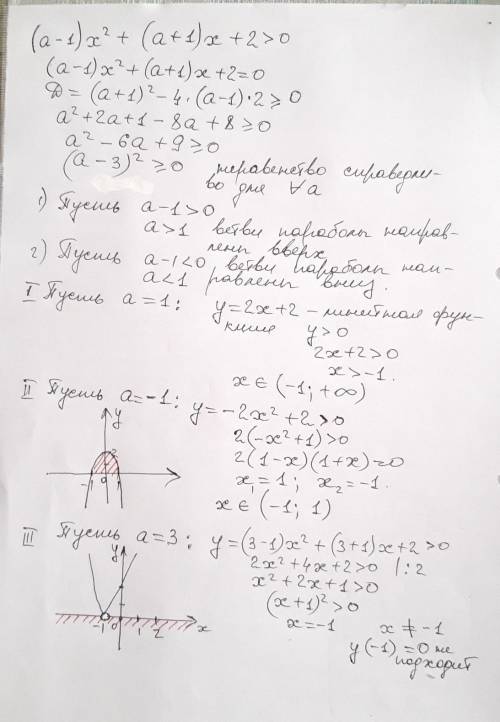 (a-1)x² + (a+1)x + 2>0
(a-1)x² + (a+1)x + 2=0
Д = (a+1)² - 4·(a-1)·2 ⩾ 0
a² + 2a + 1 - 8a + 8 ⩾ 0
a² - 6a + 9 ⩾ 0
(a-3)² ⩾ 0 неравенство справедли-
во для ∀a
1) Пусть a-1>0
a>1 ветви параболы направ-
лены вверх
2) Пусть a-1<0 ветви параболы нап-
a<1 равлены вниз.
I Пусть a=1: y=2x+2 - линейная фун-
кция y>0
2x+2>0
x>-1.
x∈(-1; +∞)
II Пусть a=-1: y=-2x²+2>0
y
2(-x²+1)>0
2
2(1-x)(1+x)=0
x₁=1; x₂=-1.
-1 0 1
x∈(-1; 1)
III Пусть a=3: y=(3-1)x²+(3+1)x+2>0
y
2x²+4x+2>0 /:2
x²+2x+1>0
(x+1)²>0
-1 0 1 2 x
x=-1 x≠-1
y(-1)=0 не
подходит